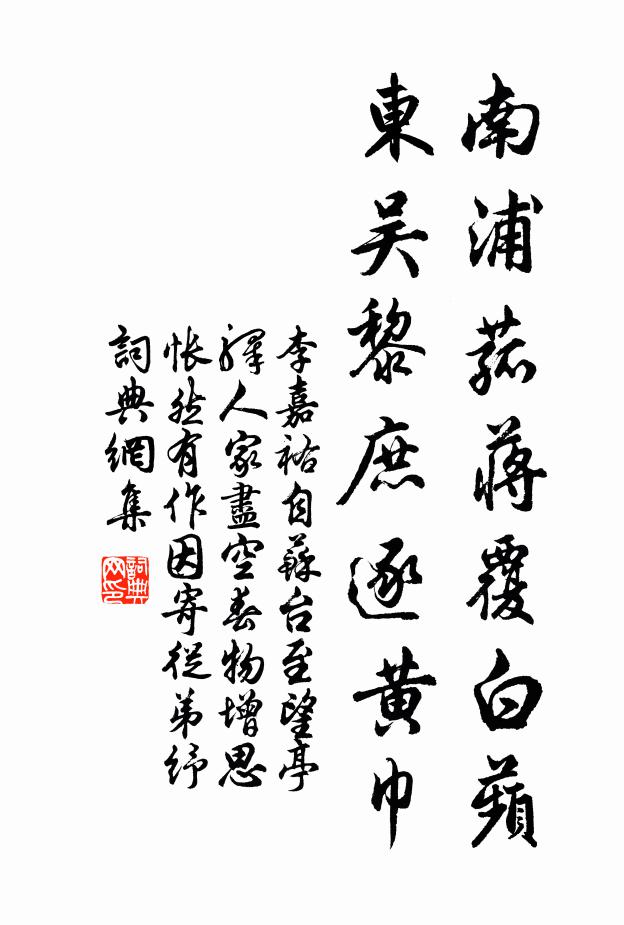 南浦菰蔣覆白蘋
東吴黎庶逐黄巾
李嘉祐自蘇台至望亭
驛人家盡空春物增思
悵然有作因寄從弟紓
詞典網集
詞典網印